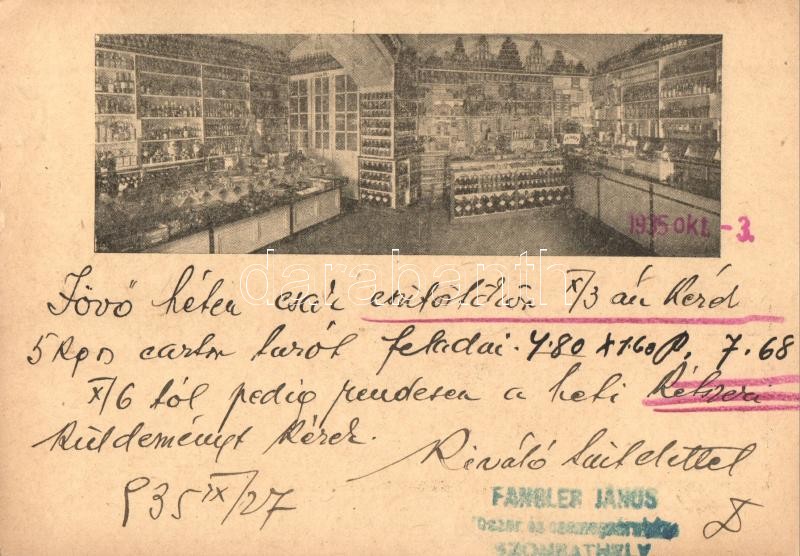 1935 okt. - 3.
darabanth
Jövő héten csak csütörtökön X/3 án kérek
5 kgos carton turót feladni. 4.80 x 1.60 P. 7.68
X/6 tól pedig rendesen a heti kétszeri
küldeményt kérek.
Kiváló tisztelettel
935 IX/27
FANGLER JÁNOS
fűszer és csemegeáruháza
SZOMBATHELY